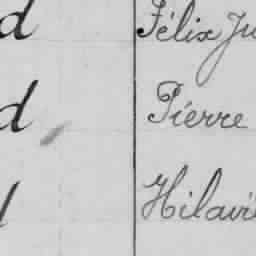 d Félix Ju
d Pierre
d Hilavi